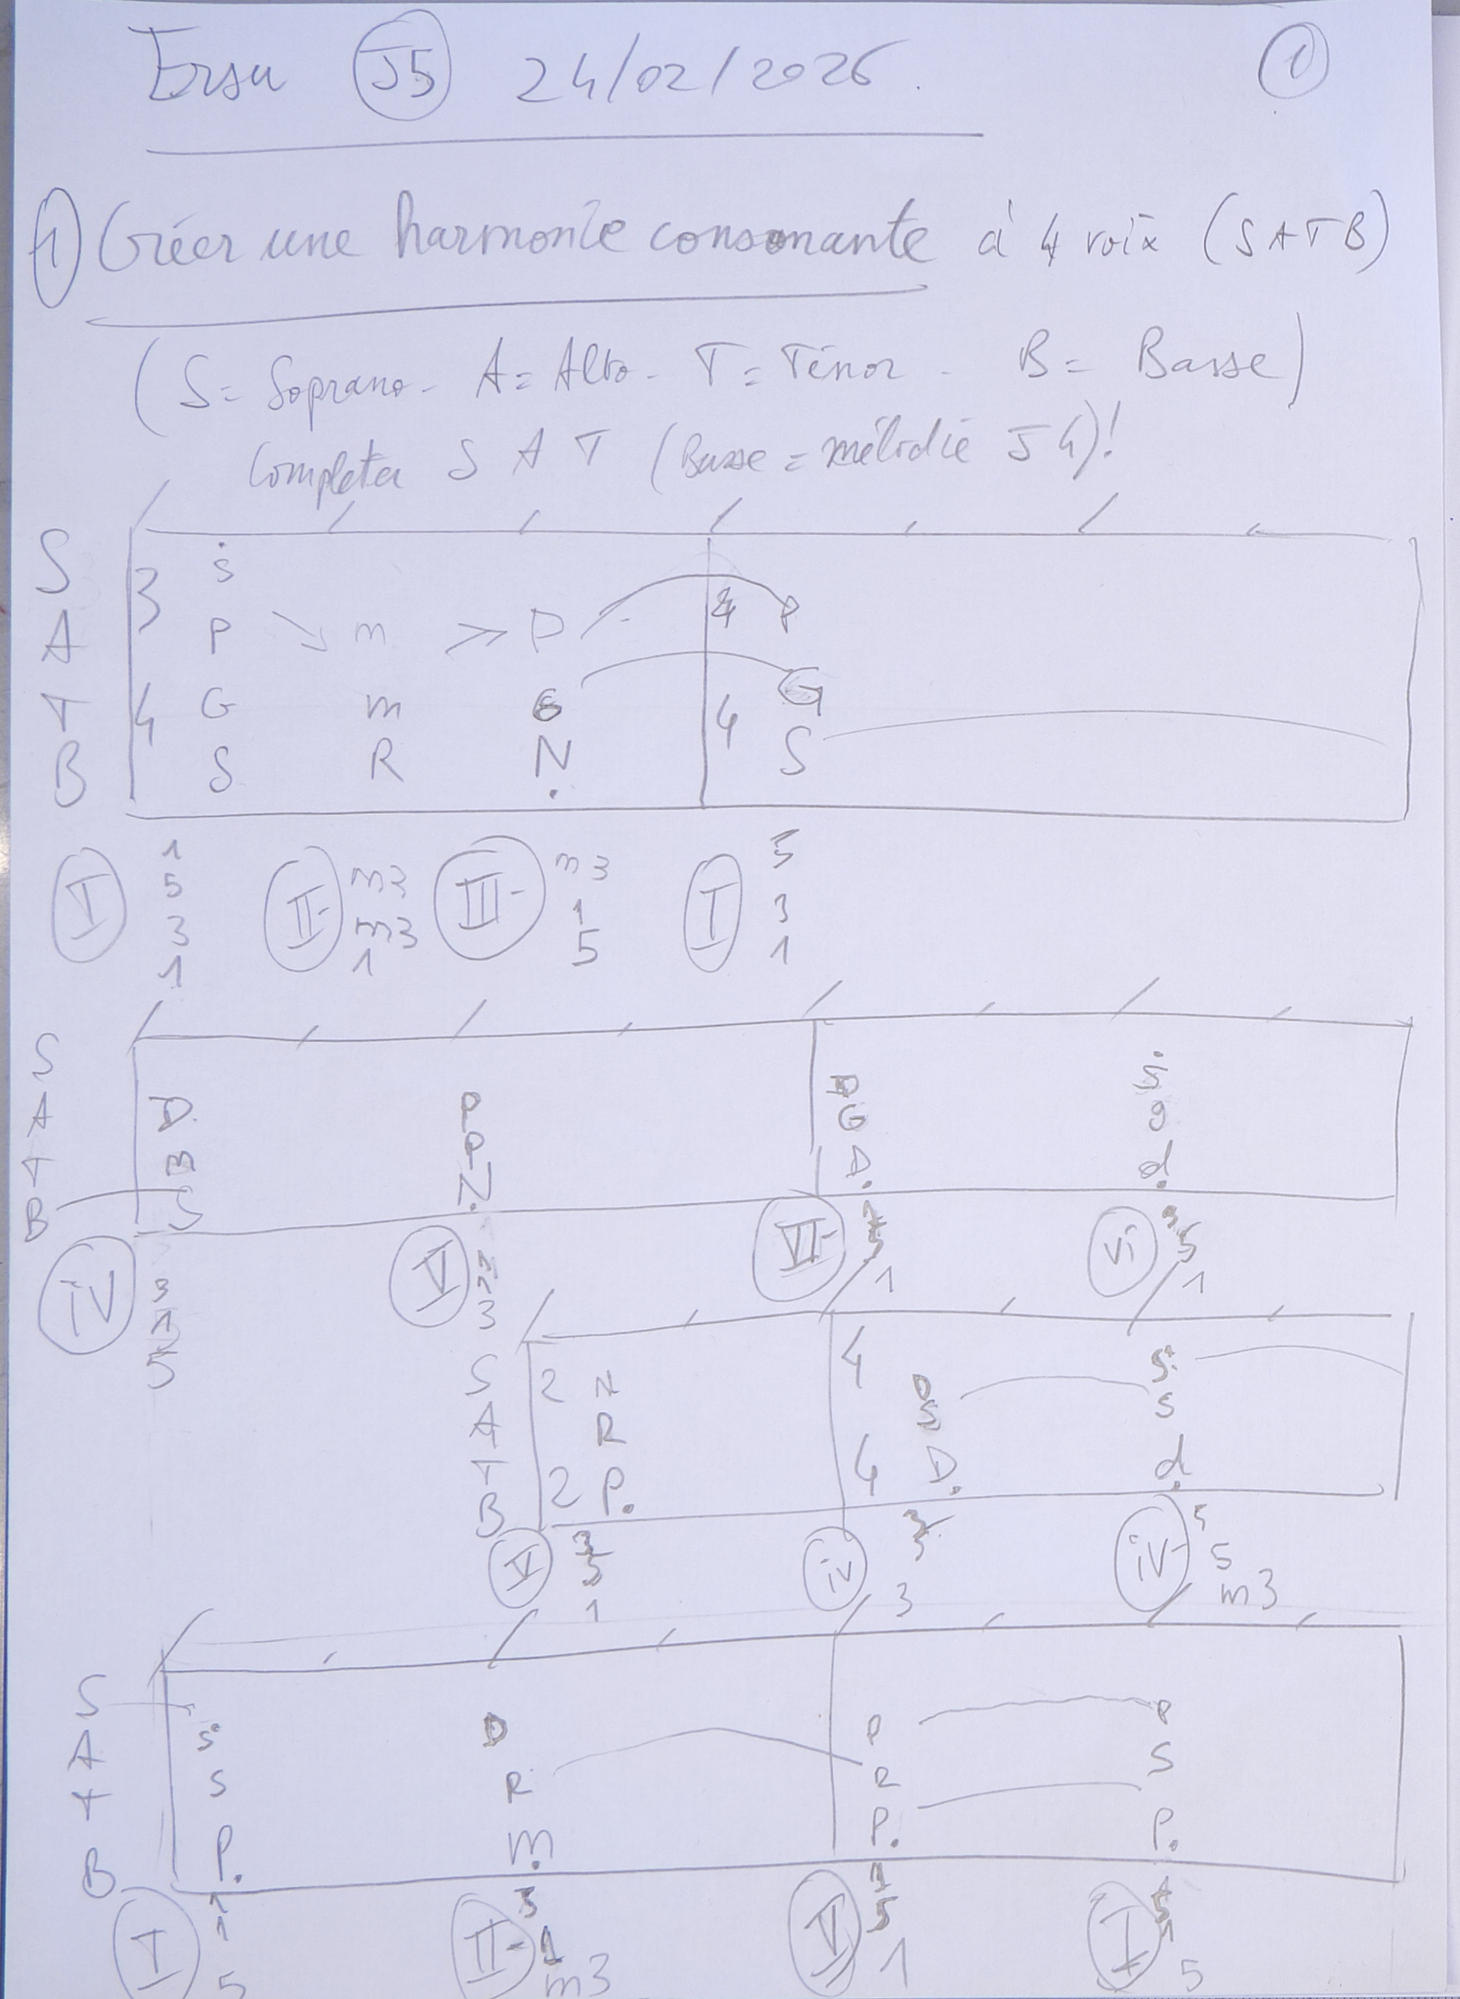 Ersu J5 24/02/2026. 1
1) Créer une harmonie consonante à 4 voix (SATB)
(S= Soprano - A= Alto - T= Ténor - B= Basse)
Completer S A T (Basse = mélodie J4)!
S 3 s
A P m P 4 P
T 4 G m G 4 G
B S R N S
I 1 5 3 1 II- m3 m3 1 III- m3 1 5 I 5 3 1
S
A D P G s g
T B P D d
B S N
IV 3 1 5 V 3 VI- 1 vi 5 1
S 2 N 4 s
A R D S s
T 2 P 4 D d
B
V 3 5 1 iv 3 iv- 5 5 m3
S s D P P
A S R R S
T P m P P
B
I 1 1 5 II- 3 1 m3 V 1 5 1 I 1 5